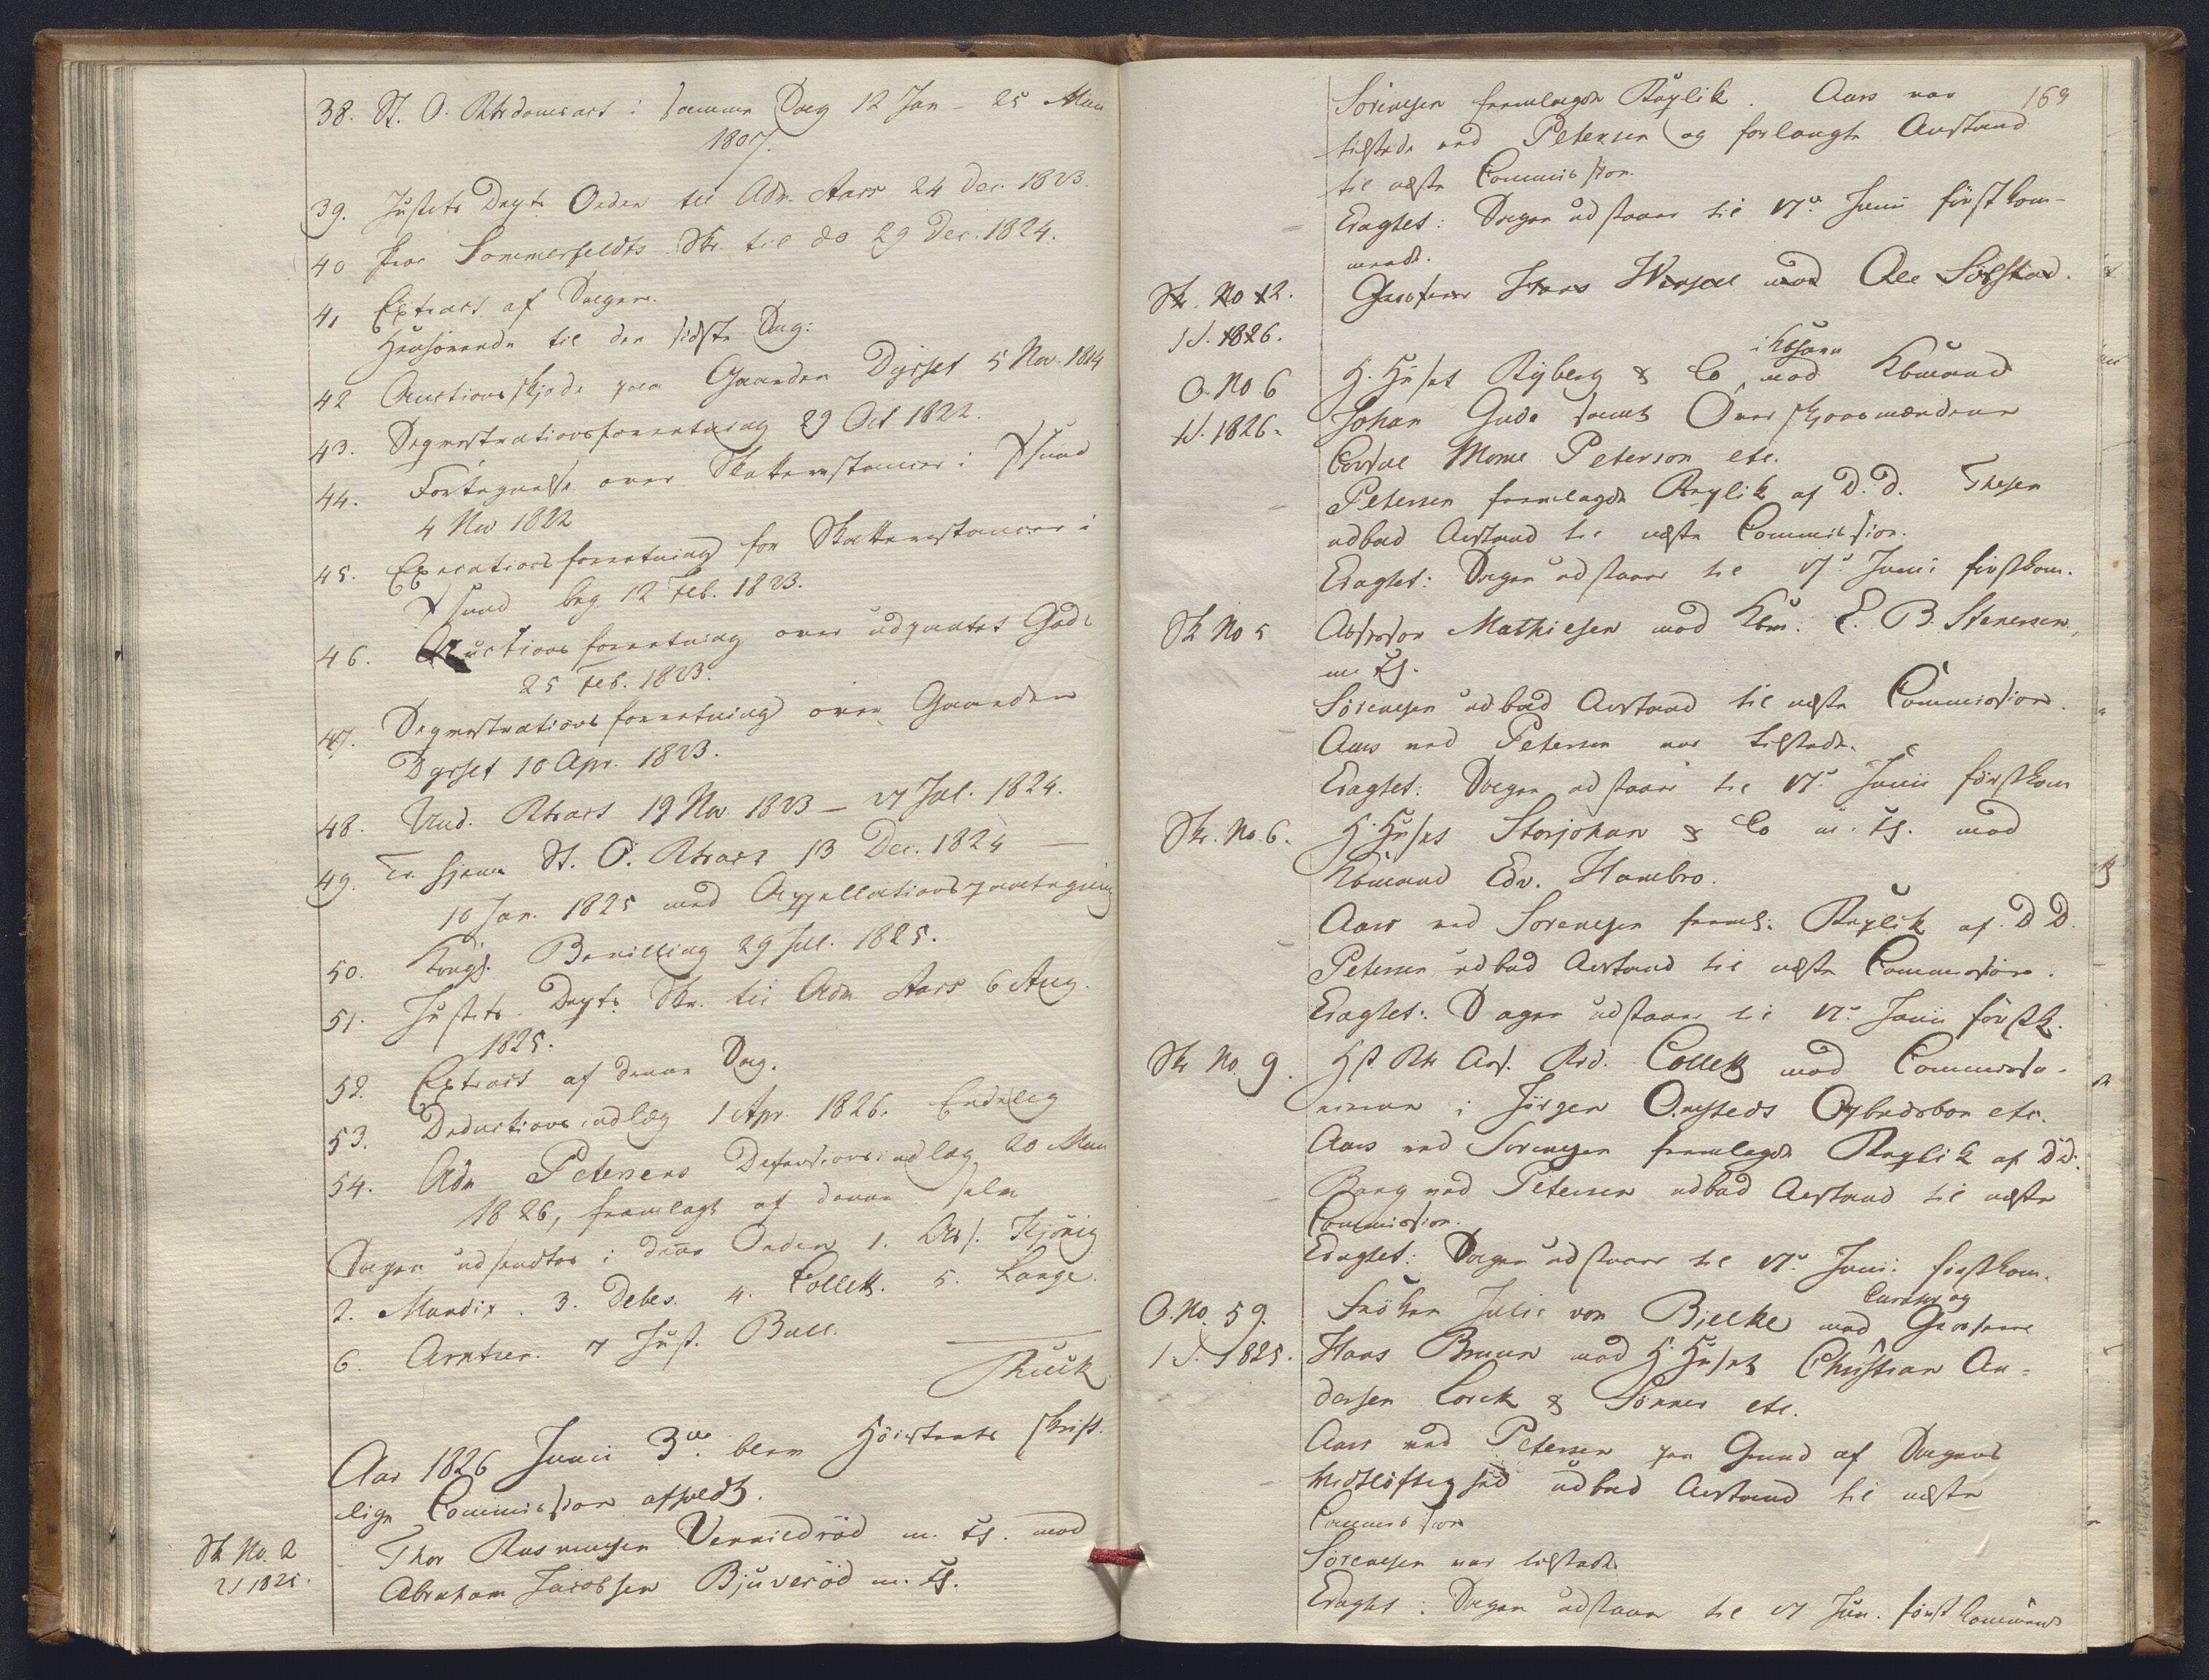 38. St. O. Rtsdomsact i samme Sag 12 Jan - 25 Mai
1807.
39. Justits Depts Orden til Adv. Aars 24 Dec. 1823.
40 Proc Sommerfeldts Skr. til do 29 Dec. 1824.
41 Extract af Sagen.
Henhørende til den sidste Sag:
42 Auctionsskjøde paa Gaarden Dysset 5 Nov. 1814
43. Seqvestrationsforretning 29 Oct 1822.
44. Fortegnelse over Skatterestancer i
4 Nov 1822
45. Executionsforretning for Skatterestancer i
beg. 12 Feb. 1823.
46. Auctionsforretning over udpantet Gods
25 Feb. 1823.
47. Seqvestrationsforretning over Gaarden
Dysset 10 Apr. 1823.
48. Und. Rtsact 19 Nov 1823 - 27 Jul. 1824.
49. Tr. hjems St. O. Rtsact 13 Dec. 1824 -
10 Jan. 1825 med Appellationspaategning
50. Kongl. Bevilling 29 Jul. 1825.
51. Justits Depts. Skr. til Adv Aars 6 Aug.
1825.
52. Extract af denne Sag.
53. Deductionsindlæg 1 Apr. 1826. Endelig
54. Adv Petersens Defensionsindlæg 20 Mai
1826, fremlagt af denne selv
Sagen udsendtes i denne Orden 1. Ass. Kjønig
2. Mandix. 3. Debes. 4. Collett. 5. Lange.
6. Arntzen. 7 Just. Bull.
Aar 1826 Junii 3die blev Høiesterets skrift-
lige Commission afholdt.
Sk No. 2
2S 1825.
Thor Rasmussen Vernildrød m. fl. mod
Abraham Jacobsen Bjuverød m. fl.
169
Sørensen fremlagde Replik. Aars var
tilstede ved Petersen og forlangte Anstand
til næste Commission.
Eragtet: Sagen udstaaer til 17de Junii førstkom-
mende.
Sk. No 12.
1 S. 1826.
Grosserer Hans Wensel mod Ole Sølstad.
O. No 6
1 S. 1826.
H. Huset Ryberg & Co i Kbhavn mod Kbmand
Johan Gude samt Overskjønsmændene
Consul Mome Peterson etc.
Petersen fremlagde Replik af D. D. Thesen
udbad Anstand til næste Commission.
Eragtet: Sagen udstaaer til 17de Junii førstkom.
Sk No 5
Assessor Mathiesen mod Kbm. E. B. Stenersen,
m. fl.
Sørensen udbad Anstand til næste Commission.
Aars ved Petersen var tilstede.
Eragtet: Sagen udstaaer til 17de Junii førstkom
Sk. No. 6.
H. Huset Storjohan & Co m. fl. mod
Kbmand Edv. Hambro.
Aars ved Sørensen freml. Replik af D D.
Petersen udbad Anstand til næste Commission.
Eragtet: Sagen udstaaer til 17de Junii førstk.
Sk No. 9.
Hst Rts Ass. Rid. Collett mod Commissa-
rierne i Jørgen Omsteds Opbudsbo etc.
Aars ved Sørensen fremlagde Replik af D. D.
Bang ved Petersen udbad Anstand til næste
Commission.
Eragtet: Sagen udstaaer til 17de Junii førstkom.
O. No. 59.
1 S. 1825.
Frøken Julie von Bielke med Curator og Grosserer
Hans Bruun mod H. Huset Christian An-
dersen Lorck & Sønner etc.
Aars ved Petersen paa Grund af Sagens
Vidtløftighed udbad Anstand til næste
Commission
Sørensen var tilstede.
Eragtet: Sagen udstaaer til 17 Jun. førstkommende